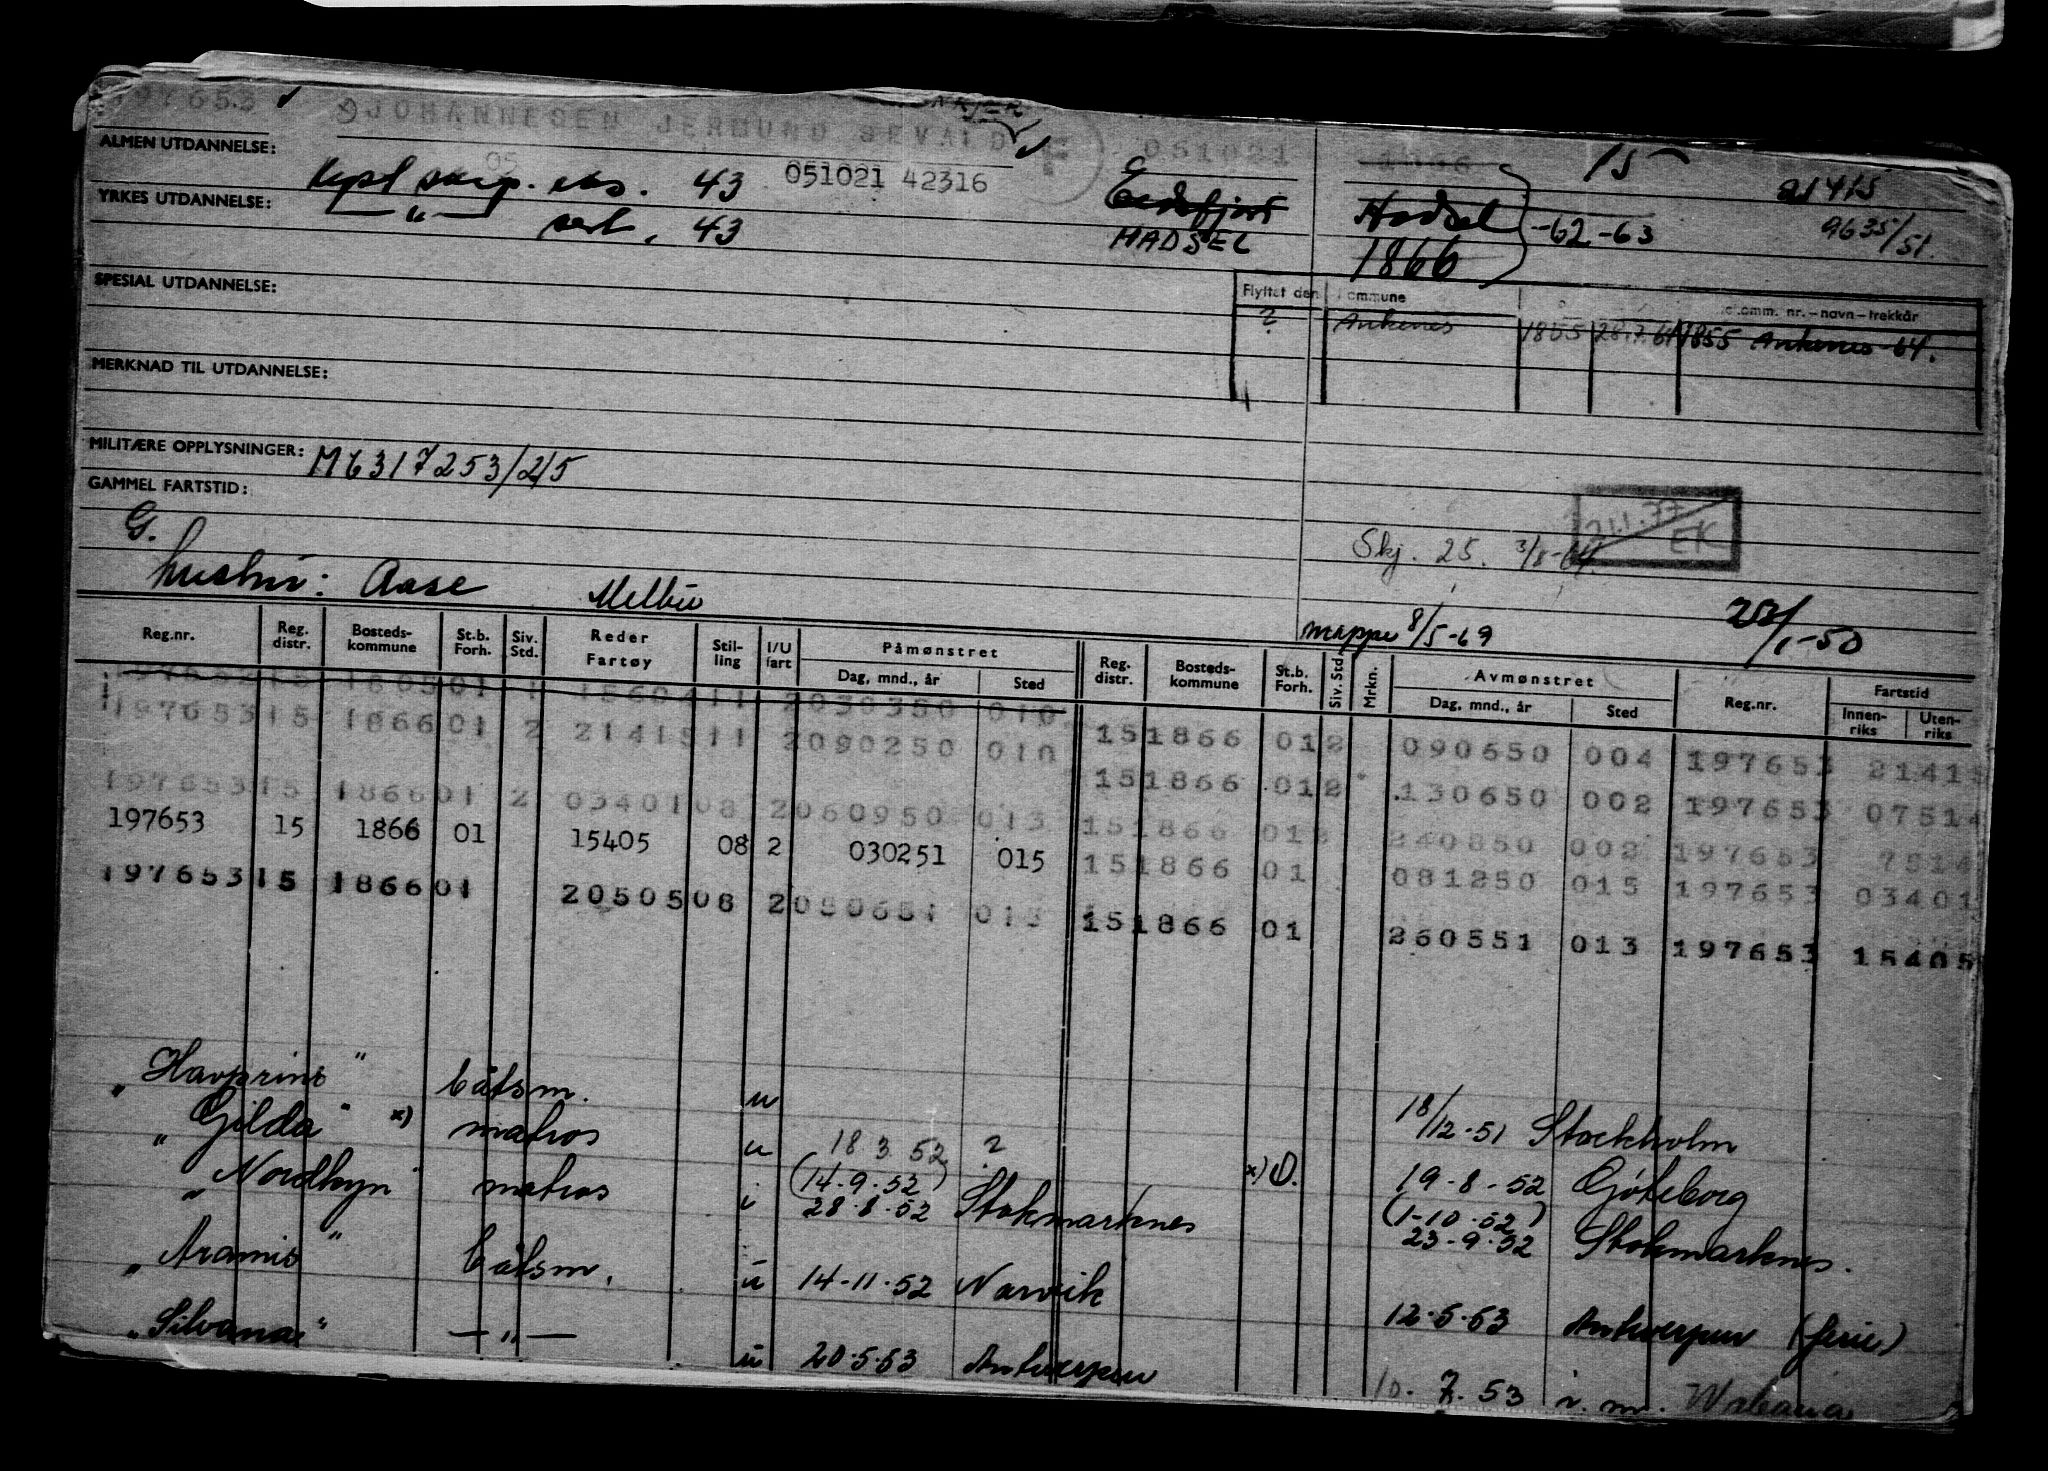 197653 JOHANNESEN JERMUND SEVALD F 051021 15 21415
ALMEN UTDANNELSE: Kyst skip. eks. 43 051021 42316 Eidsfjord Hadsel -62-63 9635/51.
YRKES UTDANNELSE: —"— sert. 43 HADSEL 1866
SPESIAL UTDANNELSE: Flyttet den Kommune comm. nr. – navn – trekkår
? Ankenes 1855 28.7.64 1855 Ankenes -64.
MERKNAD TIL UTDANNELSE:
MILITÆRE OPPLYSNINGER: M6317253/2/5
GAMMEL FARTSTID: 21.1.77 EK
G. Skj. 25. 3/8-64.
hustru: Aase Melbu
mappe 8/5-69 23/1-50
Reg.nr. Reg. distr. Bosteds-kommune St.b. Forh. Siv. Std. Reder Fartøy Stil-ling I/U fart Påmønstret Dag, mnd., år Sted Reg. distr. Bosteds-kommune St.b. Forh. Siv. Std. Mrkn. Avmønstret Dag, mnd., år Sted Reg.nr. Fartstid Innen-riks Uten-riks
197653 15 1866 01 2 21415 11 2 090250 010 15 1866 01 2 090650 004 197653 21415
15 1866 01 2 130650 002 197653 07514
197653 15 1866 01 2 03401 08 2 060950 013 15 1866 01 240850 002 197653 7514
197653 15 1866 01 15405 08 2 030251 015 15 1866 01 081250 015 197653 03401
197653 15 1866 01 20505 08 2 050651 013 15 1866 01 260551 013 197653 15405
"Havprins" båtsm. u 18/12-51 Stockholm
"Gilda" x) matros u 18 3 52 ? x) 19-8-52 Göteborg
"Nordkyn" matros i (14-9-52) 28-8-52 Stokmarknes (1-10-52) 23-9-52 Stokmarknes.
"Aramis" båtsm. u 14-11-52 Narvik 12-5-53 Antwerpen (ferie)
"Silvana" —"— u 20-5-53 Antwerpen 10. 7. 53